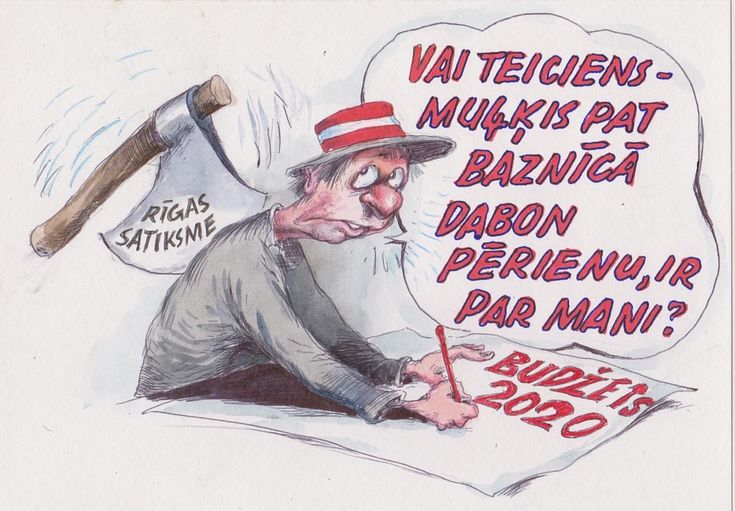 RĪGAS
SATIKSME
VAI TEICIENS-
MUĻĶIS PAT
BAZNĪCĀ
DABON
PĒRIENU, IR
PAR MANI?
BUDŽETS
2020